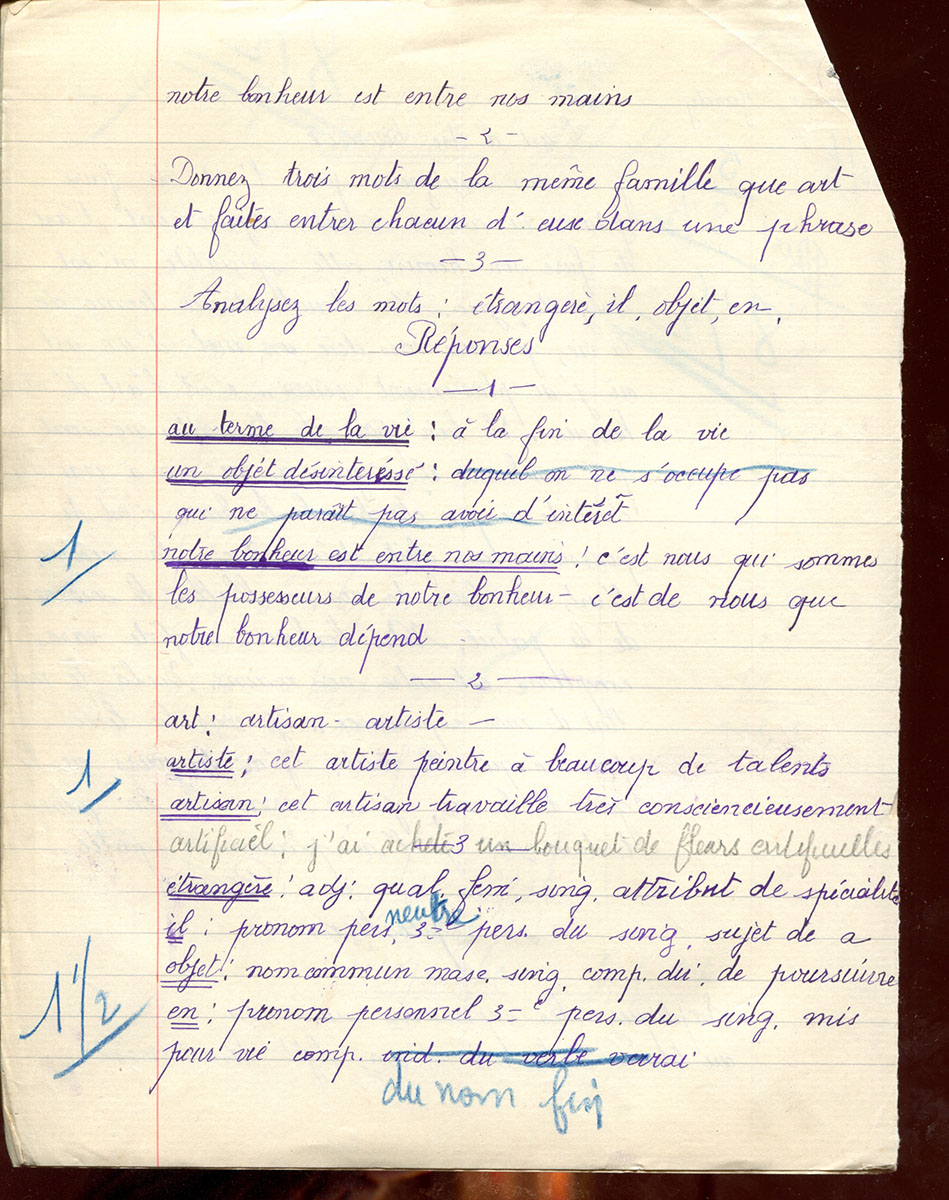 notre bonheur est entre nos mains
- 2 -
Donnez trois mots de la même famille que art
et faites entrer chacun d'eux dans une phrase
- 3 -
Analysez les mots : étrangère, il, objet, en.
Réponses
- 1 -
au terme de la vie : à la fin de la vie
un objet désinteréssé : duquel on ne s'occupe pas
qui ne paraît pas avoir d'intérêt
1
notre bonheur est entre nos mains : c'est nous qui sommes
les possesseurs de notre bonheur - c'est de nous que
notre bonheur dépend
- 2 -
art : artisan - artiste -
1
artiste : cet artiste peintre à beaucoup de talents
artisan : cet artisan travaille très consciencieusement
artificiel : j'ai acheté un bouquet de fleurs artificielles
- 3 -
étrangère : adj. qual. fém. sing. attribut de spécialité
neutre
il : pronom pers. 3=e pers. du sing. sujet de a
objet : nom commun masc. sing. comp. dir. de poursuivre
1 1/2
en : pronom personnel 3=e pers. du sing. mis
pour vie comp. ind. du verbe verrai
du nom fin